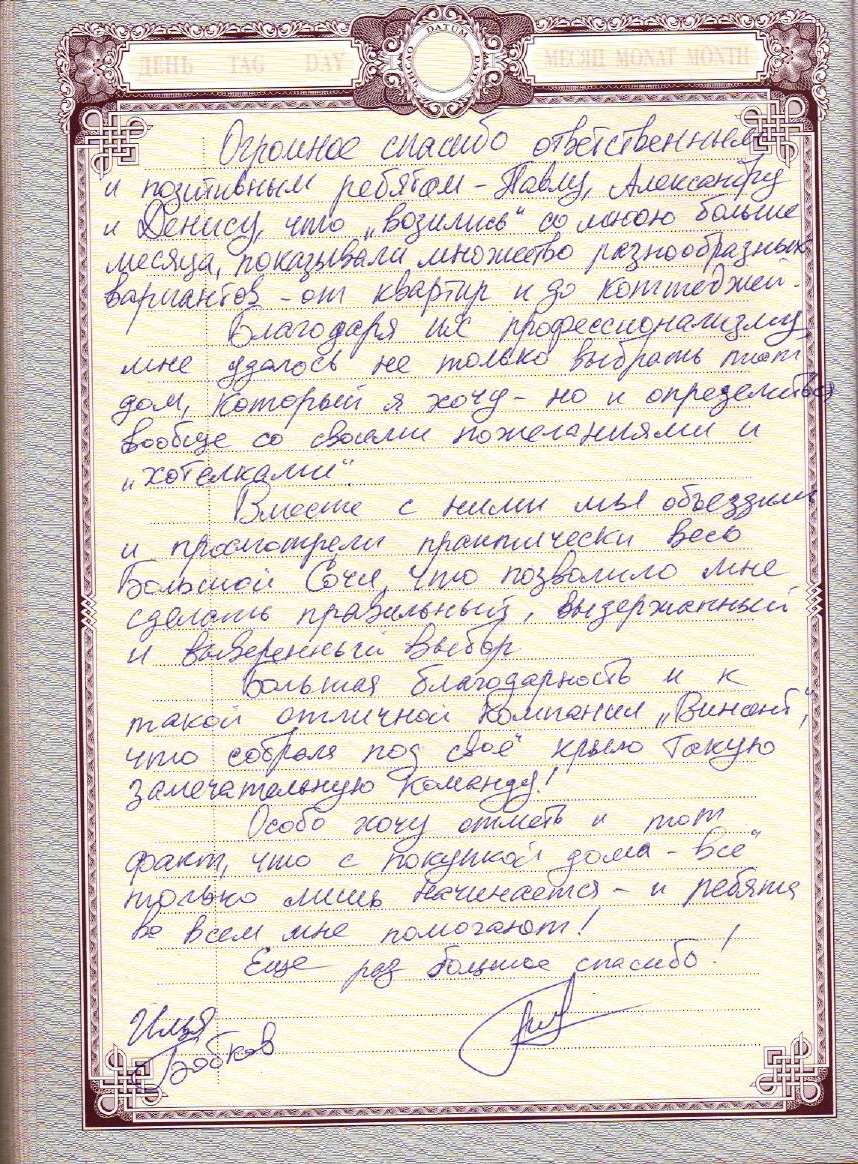 ДЕНЬ TAG DAY
DATUM
МЕСЯЦ MONAT MONTH
Огромное спасибо ответственным
и позитивным ребятам - Павлу, Александру
и Денису, что „возились“ со мною больше
месяца, показывали множество разнообразных
вариантов - от квартир и до коттеджей.
Благодаря их профессионализму,
мне удалось не только выбрать тот
дом, который я хочу - но и определиться
вообще со своими пожеланиями и
„хотелками“.
Вместе с ними мы объездили
и просмотрели практически весь
Большой Сочи, что позволило мне
сделать правильный, выдержанный
и выверенный выбор
Большая благодарность и к
такой отличной компании „Винсент“,
что собрала под своё крыло такую
замечательную команду!
Особо хочу отметь и тот
факт, что с покупкой дома - всё
только лишь начинается - и ребята
во всем мне помогают!
Еще раз большое спасибо!
Илья
Бобков